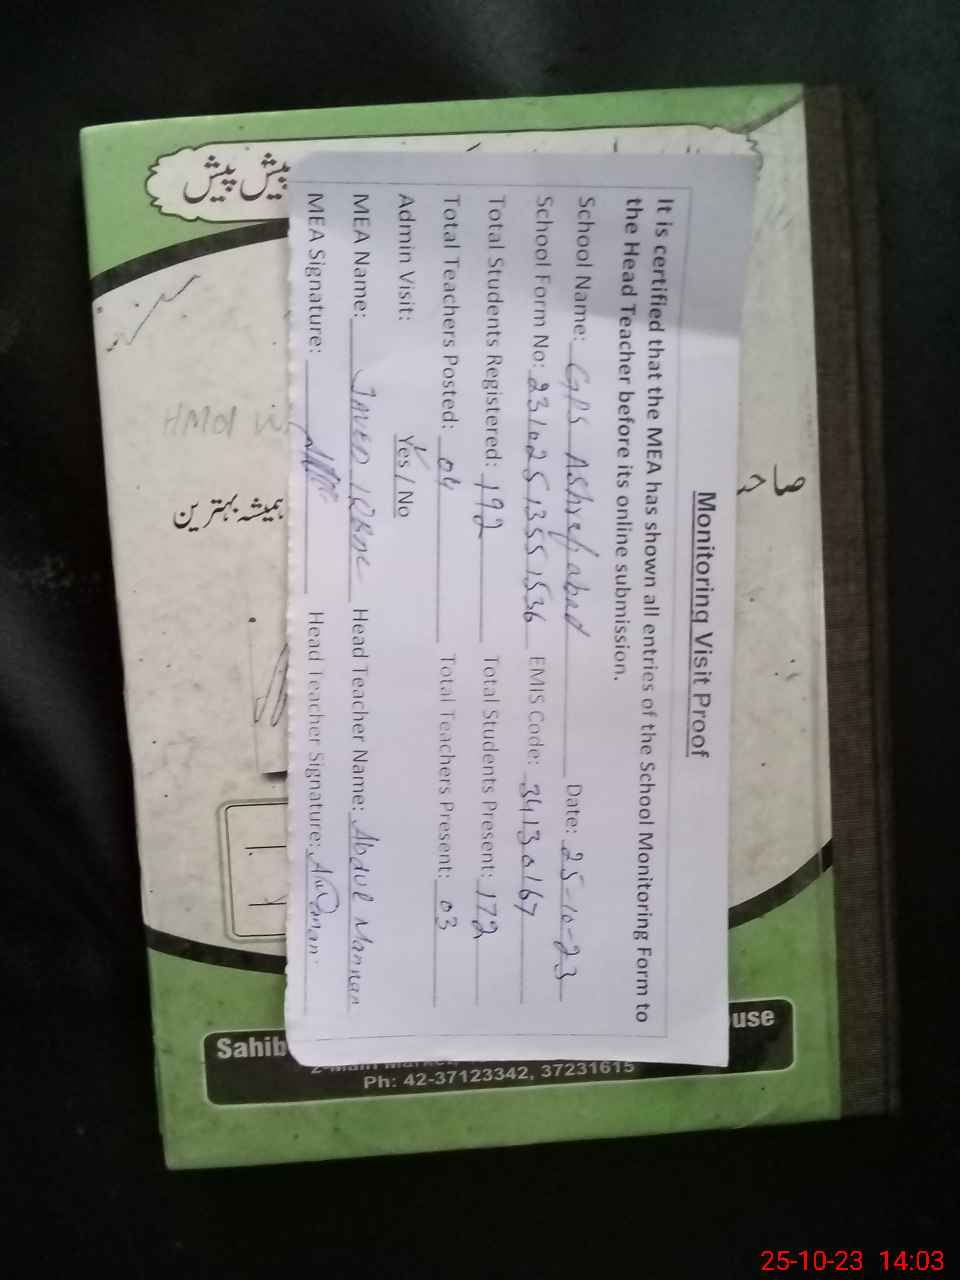 Monitoring Visit Proof
It is certified that the MEA has shown all entries of the School Monitoring Form to
the Head Teacher before its online submission.
School Name: GPS Ashrafabad Date: 25-10-23
School Form No: 23102513551536 EMIS Code: 34130167
Total Students Registered: 192 Total Students Present: 172
Total Teachers Posted: 04 Total Teachers Present: 03
Admin Visit: Yes / No
MEA Name: JAVED IQBAL Head Teacher Name: Abdul Mannan
MEA Signature: Head Teacher Signature: AMannan
پیش پیش
صاحب
ہمیشہ بہترین
Sahib
use
Ph: 42-37123342, 37231615
25-10-23 14:03